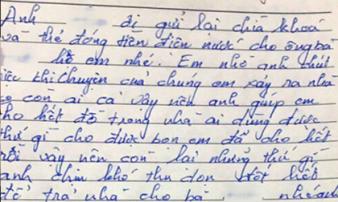 Anh đi gửi lại chìa khoá
và thẻ đóng tiền điện nước cho ông bà
hộ em nhé. Em nhờ anh chút
việc khi chuyện của chúng em xảy ra nhà
còn ai cả vậy nên anh giúp em
cho hết đồ trong nhà ai dùng được
thứ gì cho được bọn em đã cho hết
rồi vậy nên còn lại những thứ gì
anh chịu khó thu dọn đốt hết
để trả nhà cho bà nhé anh